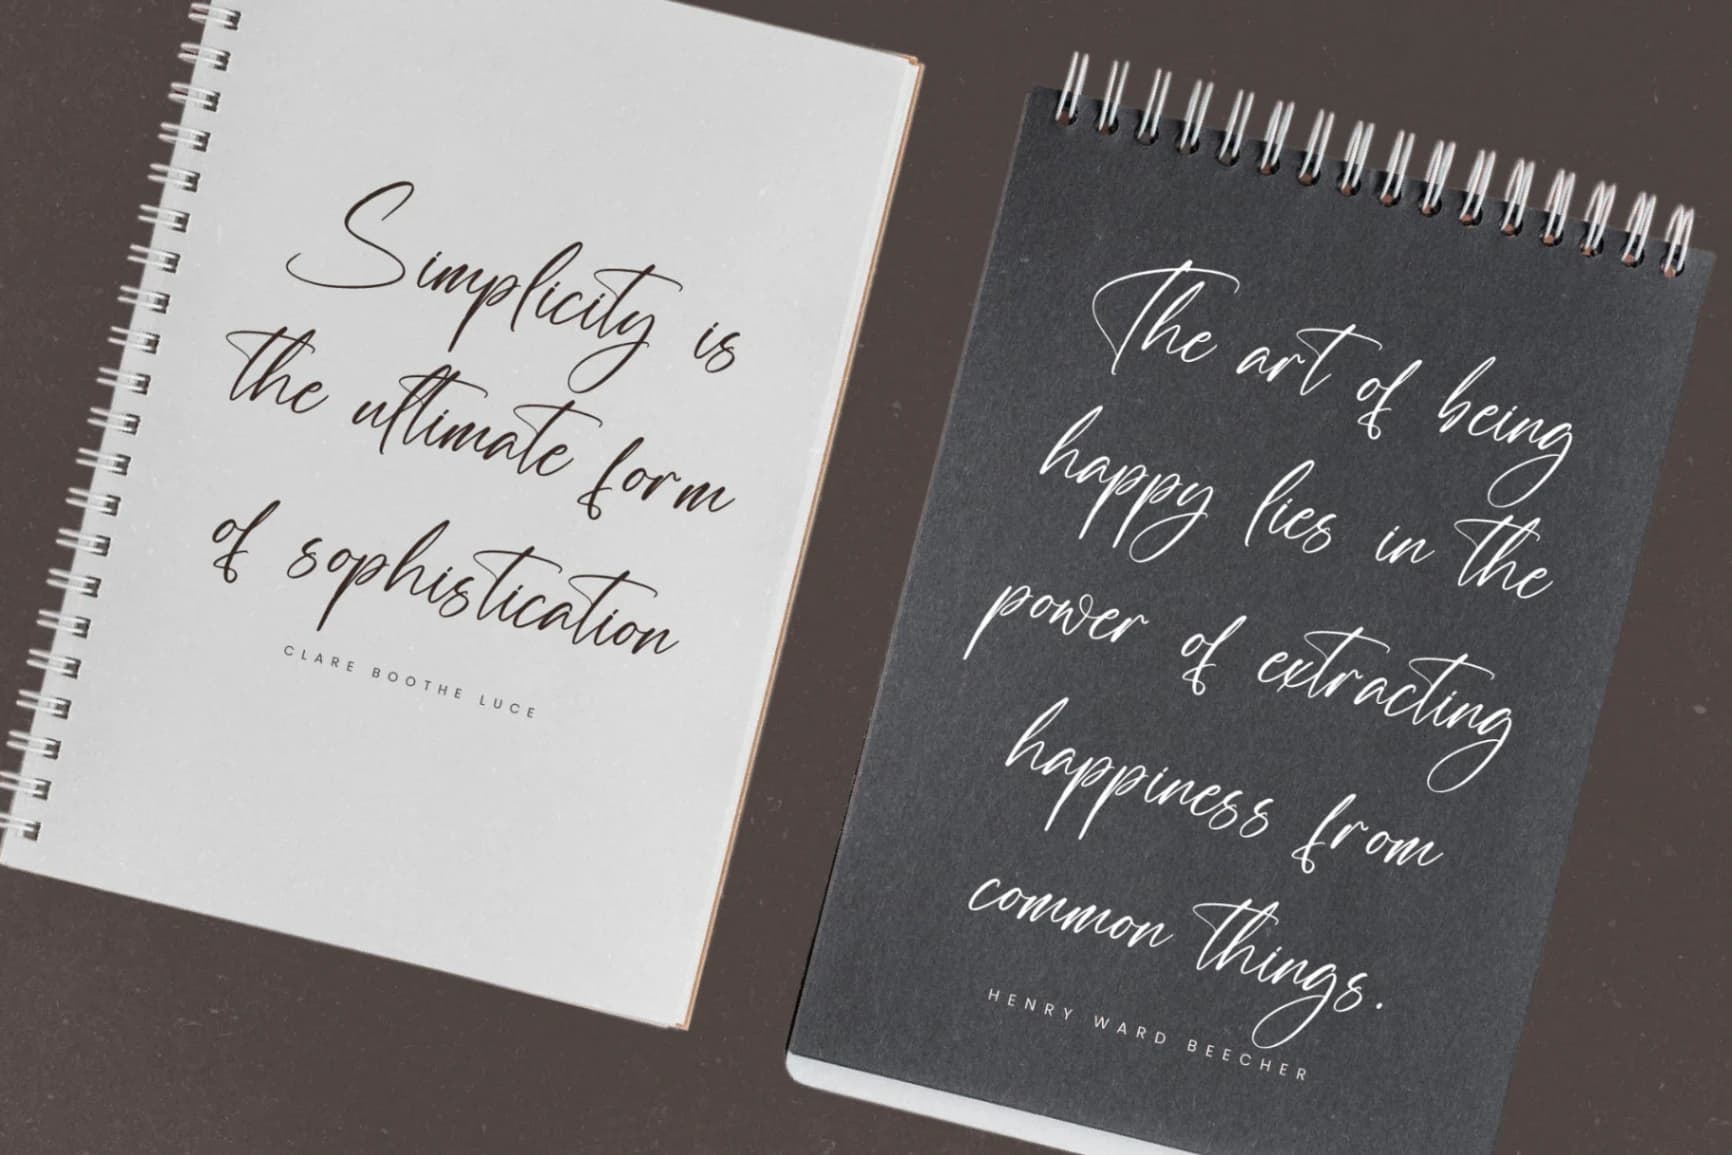 Simplicity is
the ultimate form
of sophistication
CLARE BOOTHE LUCE
The art of being
happy lies in the
power of extracting
happiness from
common things.
HENRY WARD BEECHER